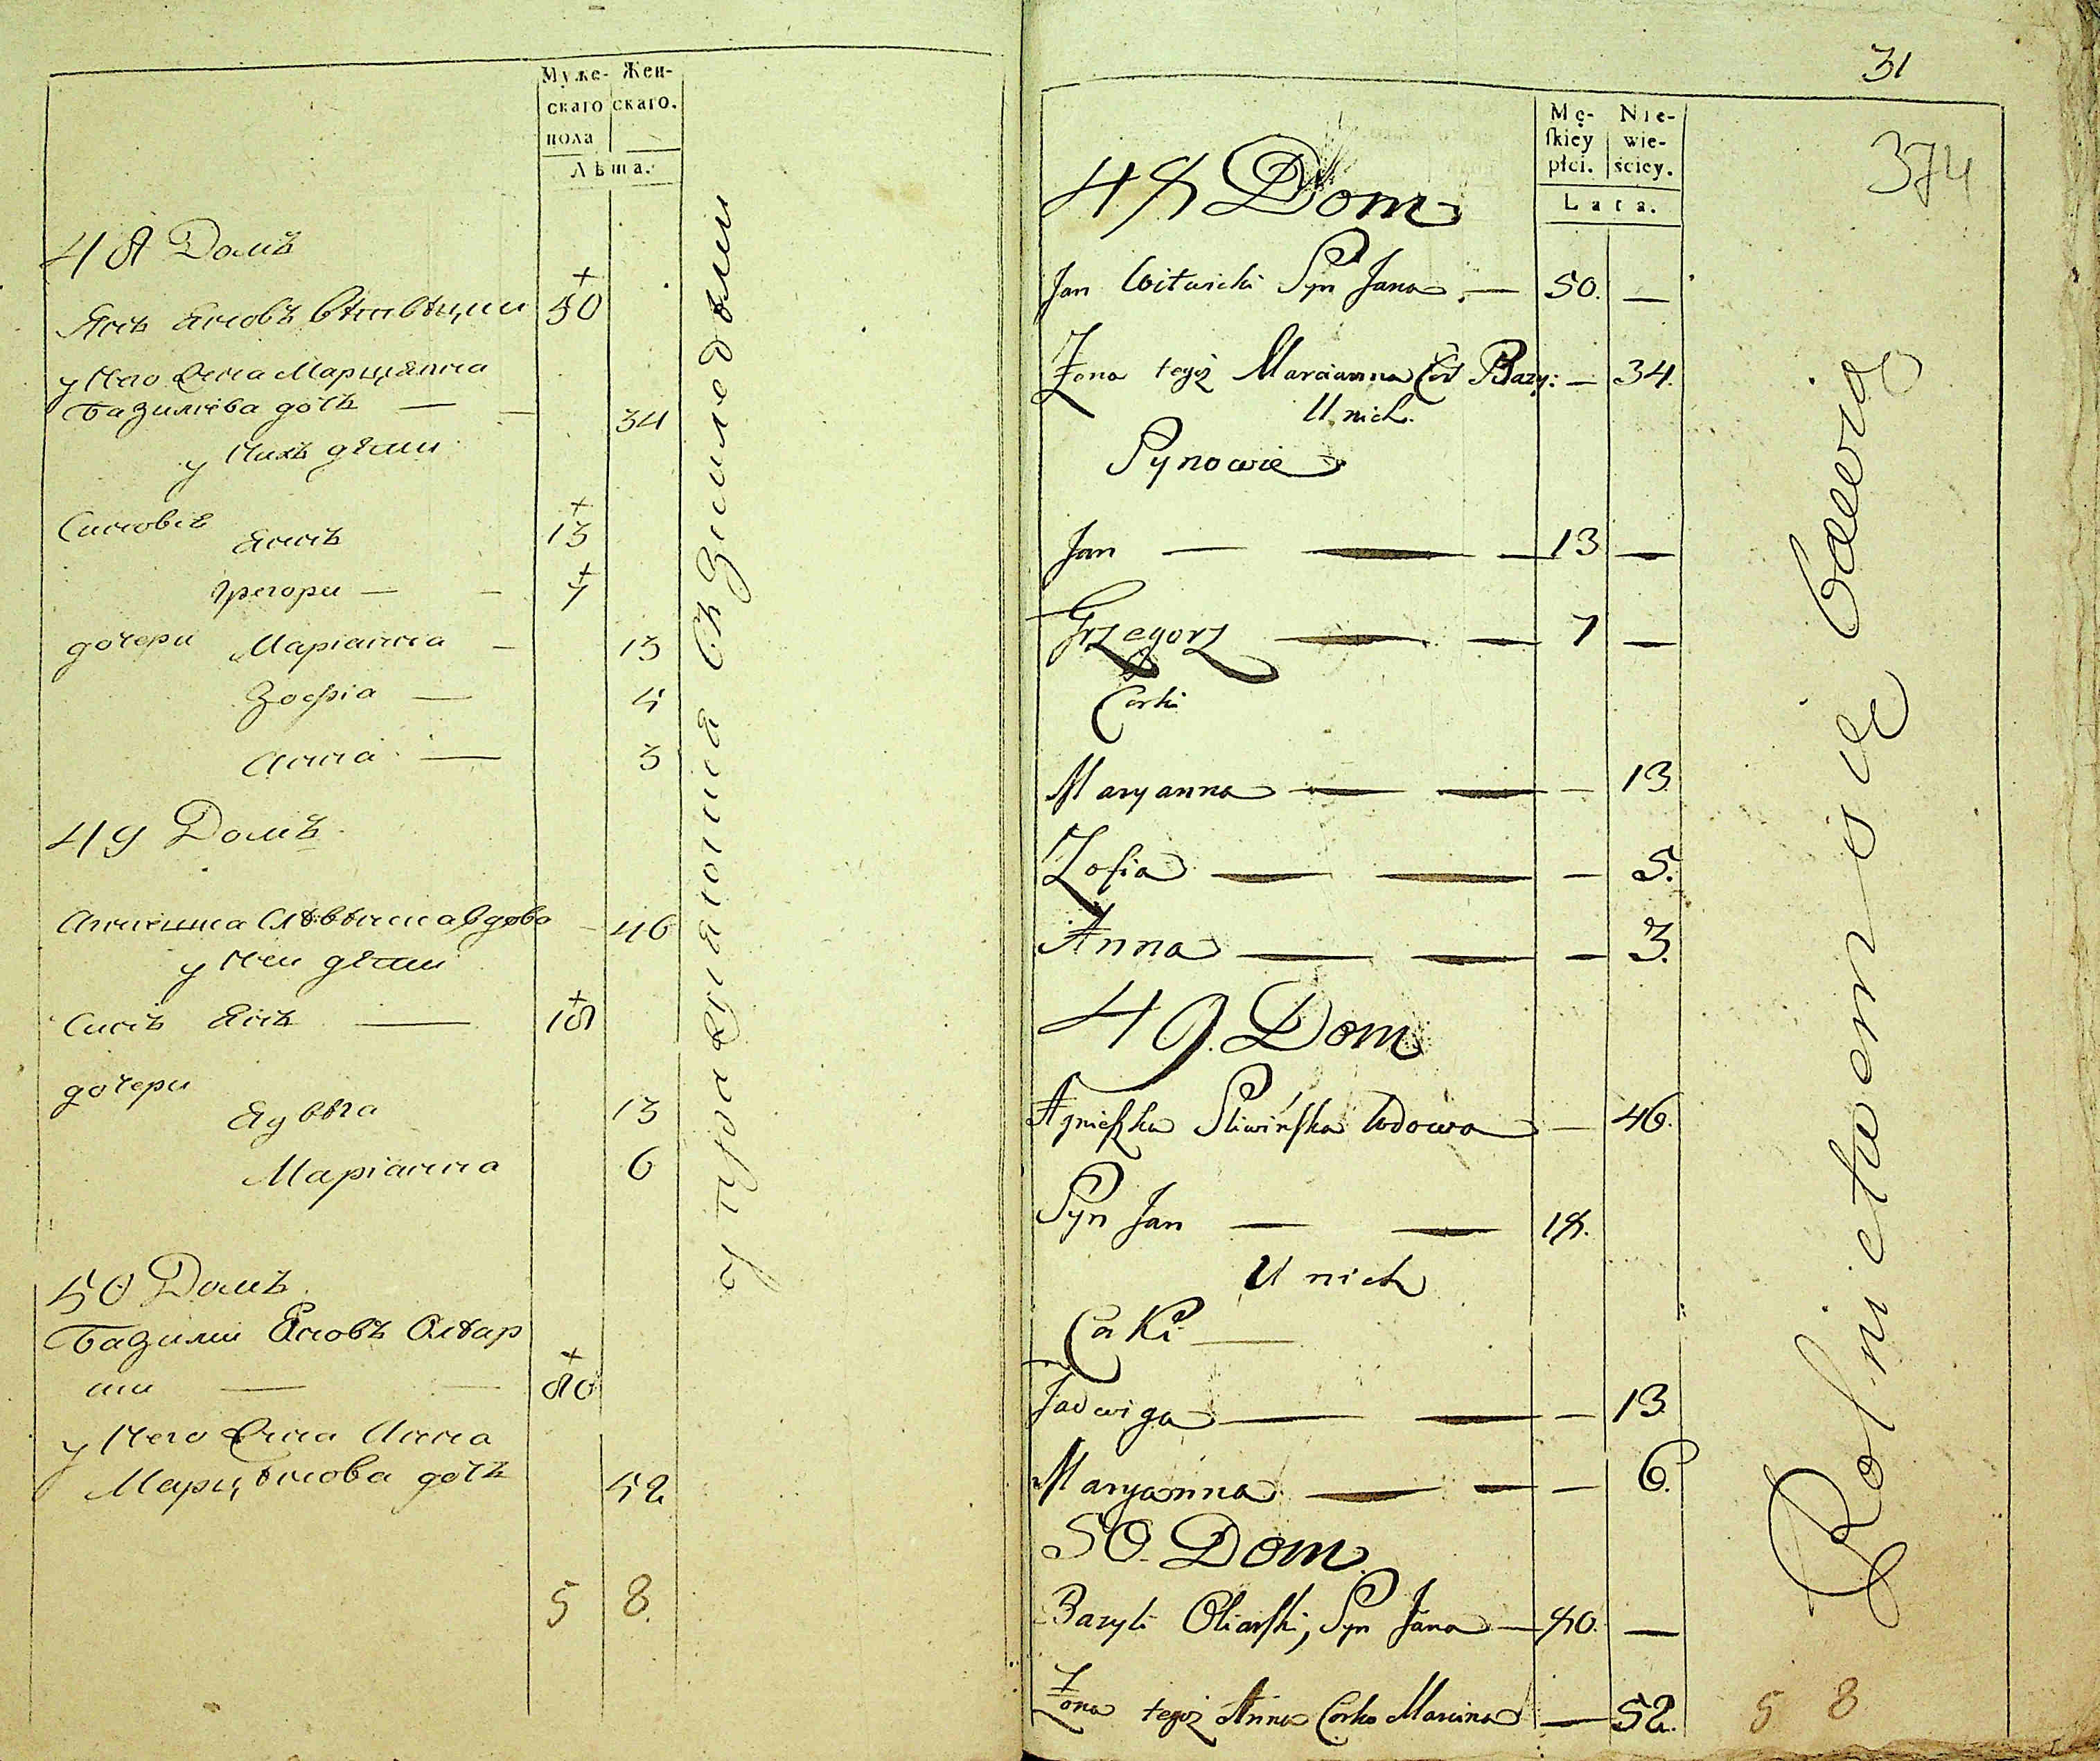 Муже- Жен-
скаго скаго.
пола
Лѣта.
48 Домъ
Янъ Яновъ Витвицки 50
у него жена Марцянна
Базилева дочь — — 34
у нихъ дѣти
Синовѣ Янъ 13
Грегори — — 7
дочери Маріанна — 13
Зофіа — 5
Анна — 3
49 Домъ
вдова — 46
у ней дѣти
Синъ Янъ — 18
дочери
Ядвига 13
Маріанна 6
50 Домъ
Базили Яновъ Оляр
ски — — 80
у него жена Анна
Марцинова дочь 52
5 8.
упражняются въ земледѣлии
31
374
Mę- Nie-
ſkiey wie-
płci. ściey.
Lata.
48 Dom
Jan Witwicki Syn Jana — 50. —
Żona tegoż Marcianna Cór Bazy: — 34.
U nich.
Synowie
Jan — — — 13 —
Grzegorz — — 7 —
Corki
Maryanna — — — 13
Zofia — — — 5.
Anna — — — 3.
49. Dom
Agnieſzka Sliwińſka Wdowa — 46.
Syn Jan — — 18.
U nich
Corki —
Jadwiga — — — 13
Maryanna — — — 6.
50. Dom.
Bazyli Oliarſki, Syn Jana — 80. —
Żona tegoż Anna Corka Marcina — 52.
5 8
Rolnictwem się bawią